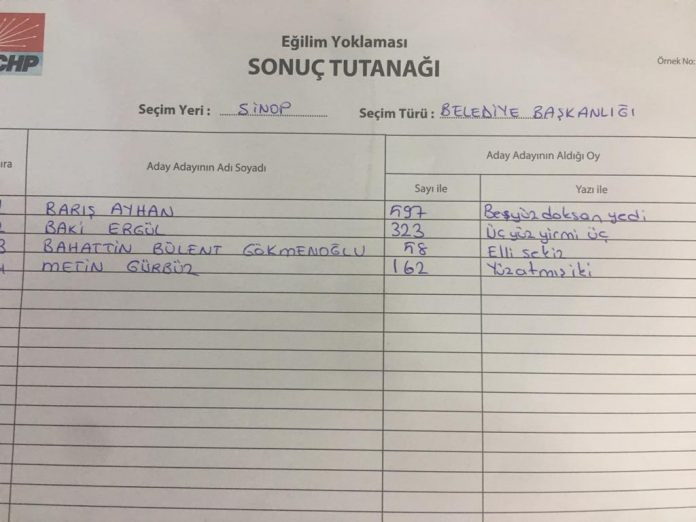 CHP
Eğilim Yoklaması
SONUÇ TUTANAĞI
Örnek No:
Seçim Yeri : SİNOP Seçim Türü : BELEDİYE BAŞKANLIĞI
ıra Aday Adayının Adı Soyadı Aday Adayının Aldığı Oy
Sayı ile Yazı ile
1 BARIŞ AYHAN 597 Beşyüz doksan yedi
2 BAKİ ERGÜL 323 Üçyüz yirmi üç
3 BAHATTİN BÜLENT GÖKMENOĞLU 58 Elli sekiz
4 METİN GÜRBÜZ 162 Yüzatmış iki